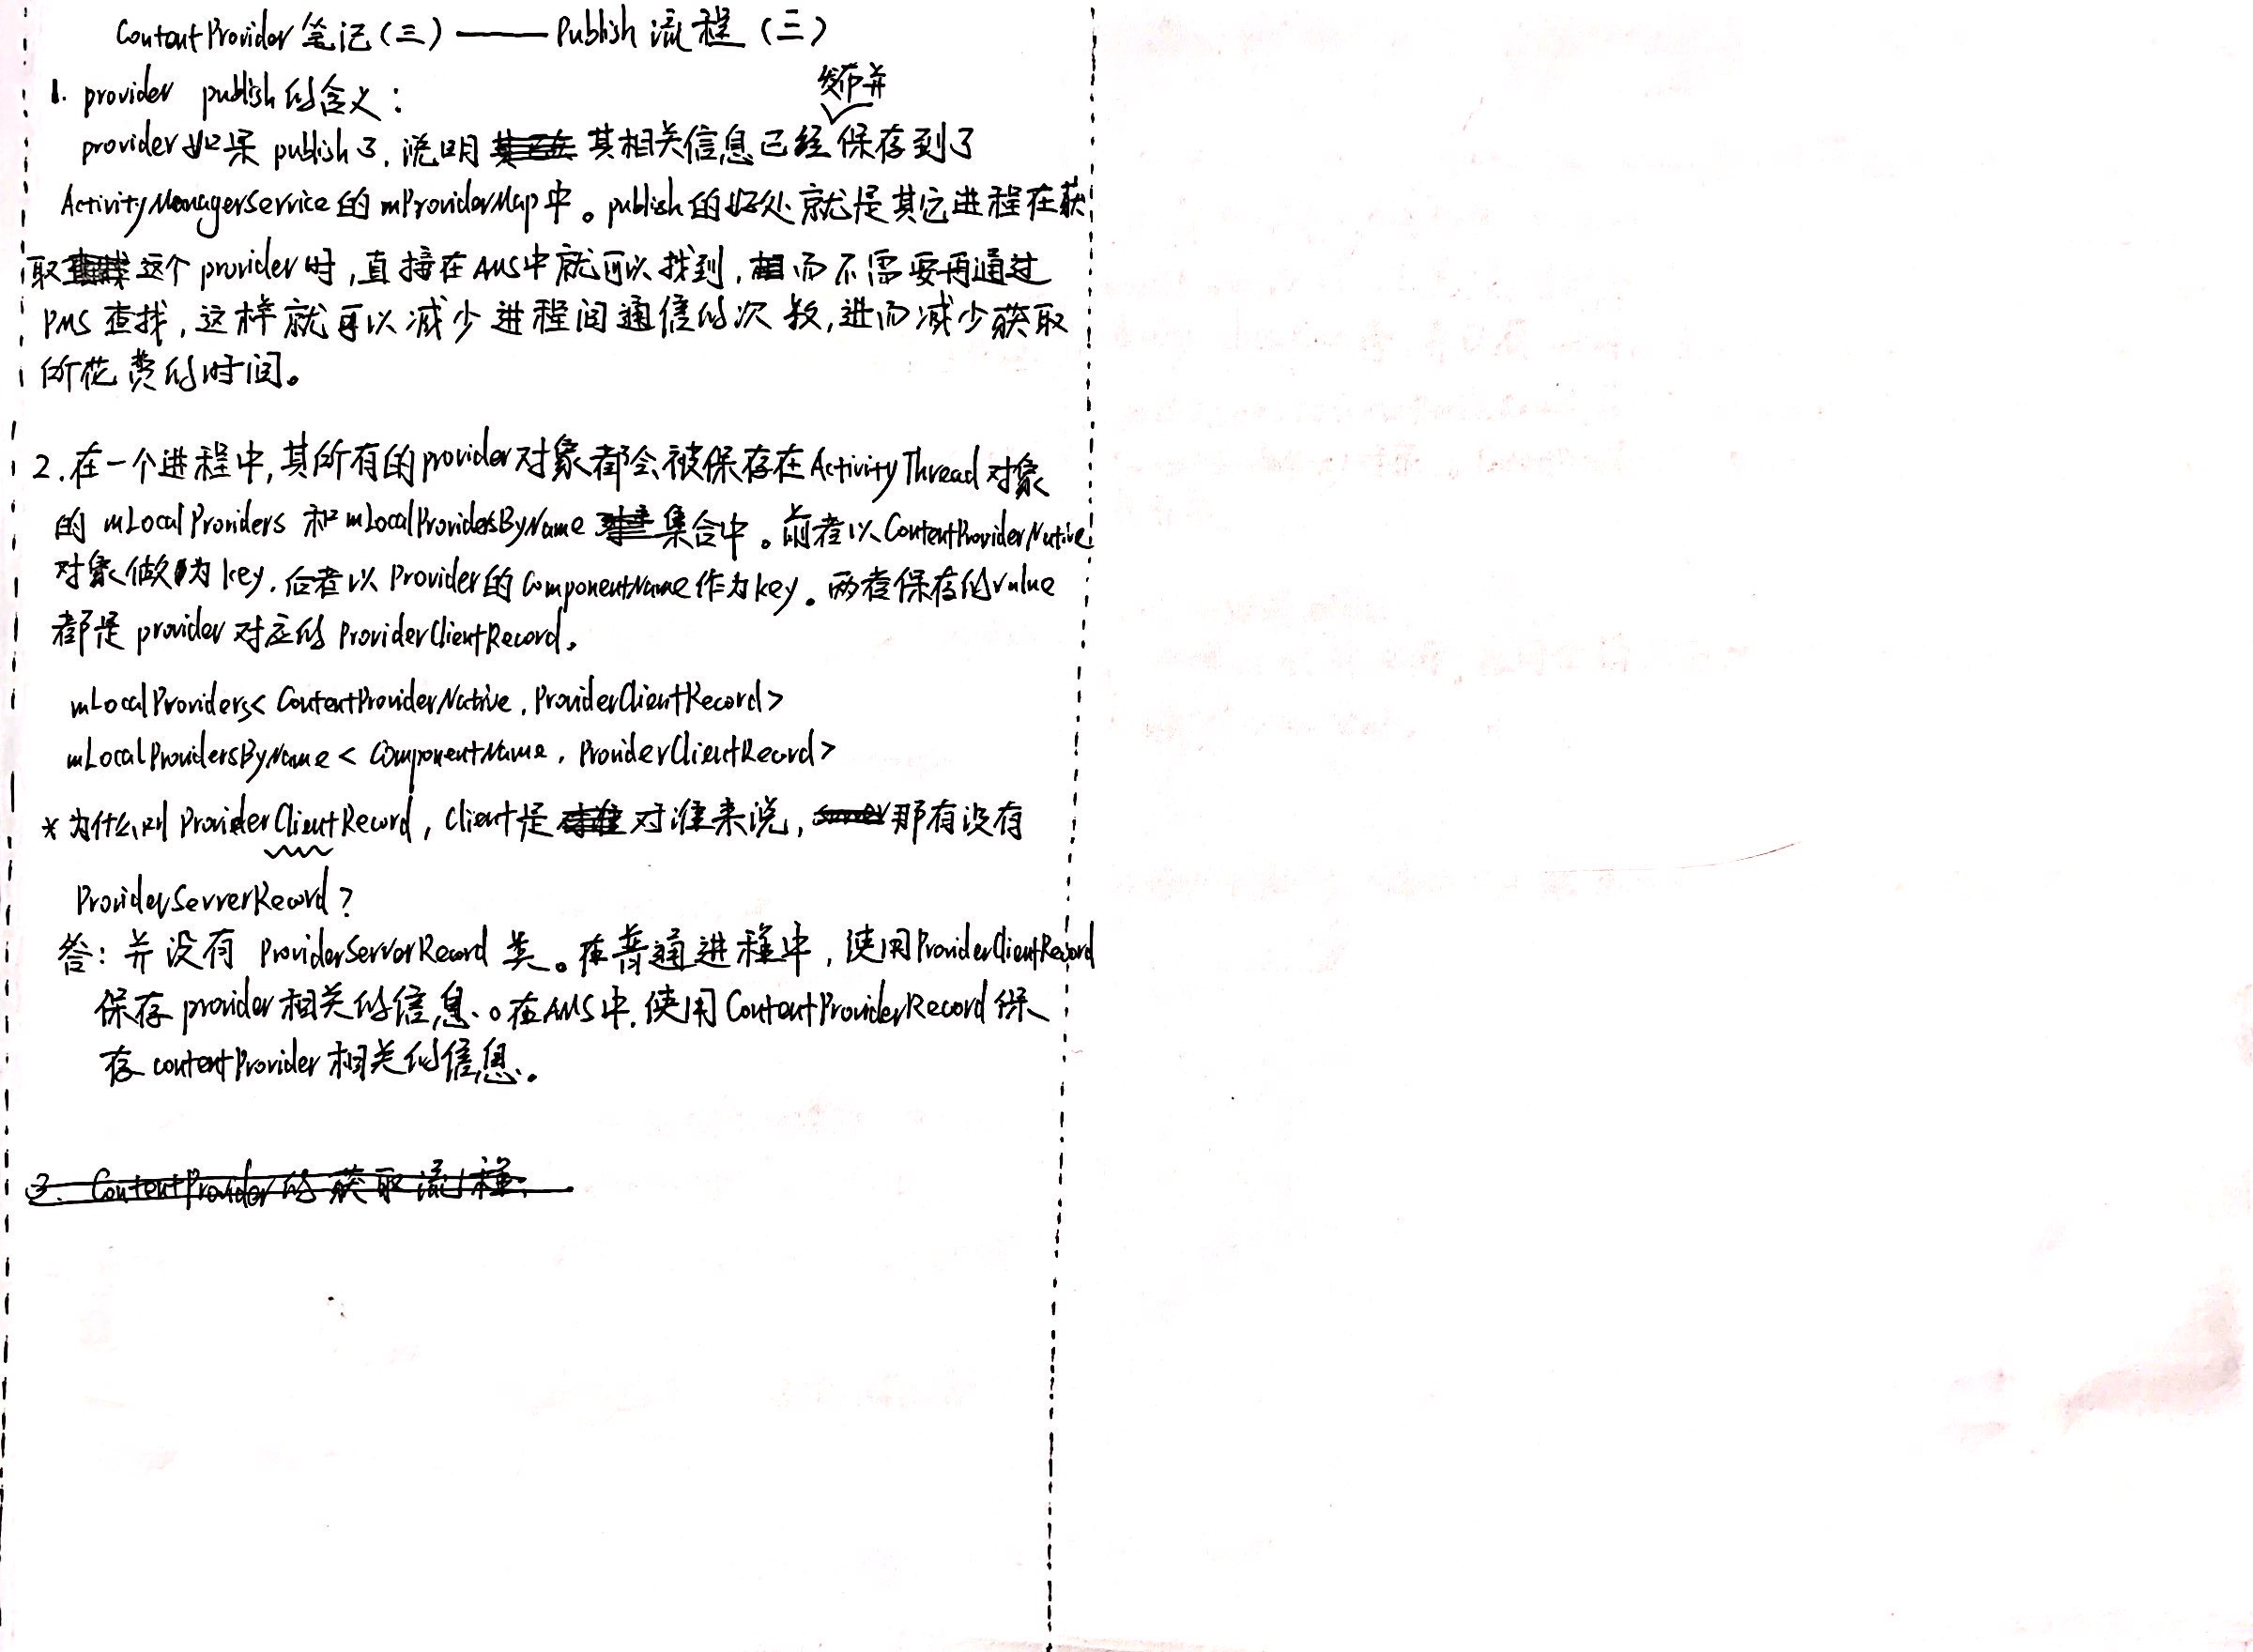 ContentProvider 笔记(三)——Publish 流程(三)
1. provider publish的含义:
发布并
provider如果 publish了, 说明 其相关信息已经保存到了
ActivityManagerService的 mProviderMap中。publish的好处就是其它进程在获
取 这个 provider时,直接在AMS中就可以找到, 而不需要再通过
PMS 查找,这样就可以减少进程间通信的次数,进而减少获取
所花费的时间。
2.在一个进程中,其所有的provider对象都会被保存在ActivityThread对象
的 mLocalProviders 和 mLocalProvidersByName 集合中。前者以ContentProviderNative
对象做为key,后者以Provider的ComponentName作为key。两者保存的value
都是 provider 对应的 ProviderClientRecord。
mLocalProviders< ContentProviderNative, ProviderClientRecord>
mLocalProvidersByName < ComponentName, ProviderClientRecord>
* 为什么叫 ProviderClientRecord, Client是 对谁来说, 那有没有
ProviderServerRecord?
答: 并没有 ProviderServerRecord 类。在普通进程中,使用ProviderClientRecord
保存provider相关的信息。在AMS中,使用ContentProviderRecord保
存 contentProvider相关的信息。
3. ContentProvider的获取流程